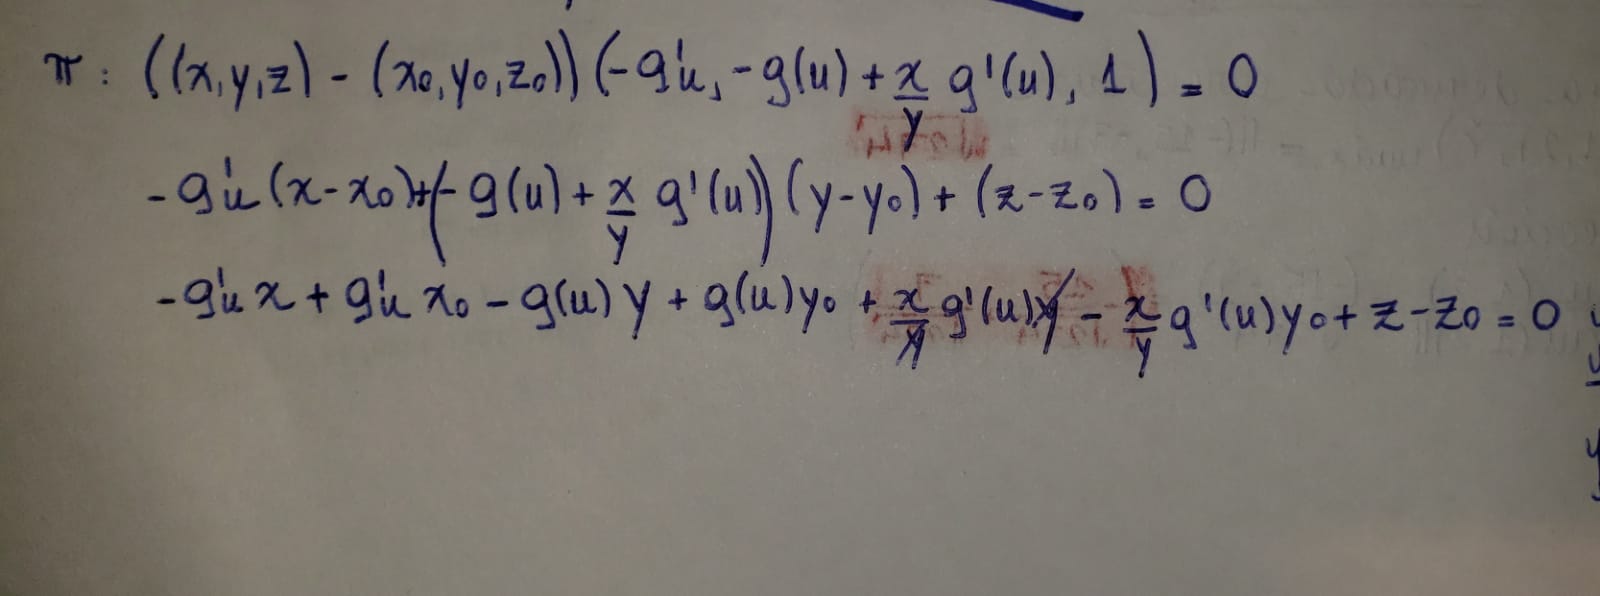 π: ((x,y,z) - (x₀,y₀,z₀)) (-g'u, -g(u) + x/y g'(u), 1) = 0
-g'u (x-x₀) + (-g(u) + x/y g'(u)) (y-y₀) + (z-z₀) = 0
-g'u x + g'u x₀ - g(u) y + g(u) y₀ + x/y g'(u) y - x/y g'(u) y₀ + z - z₀ = 0